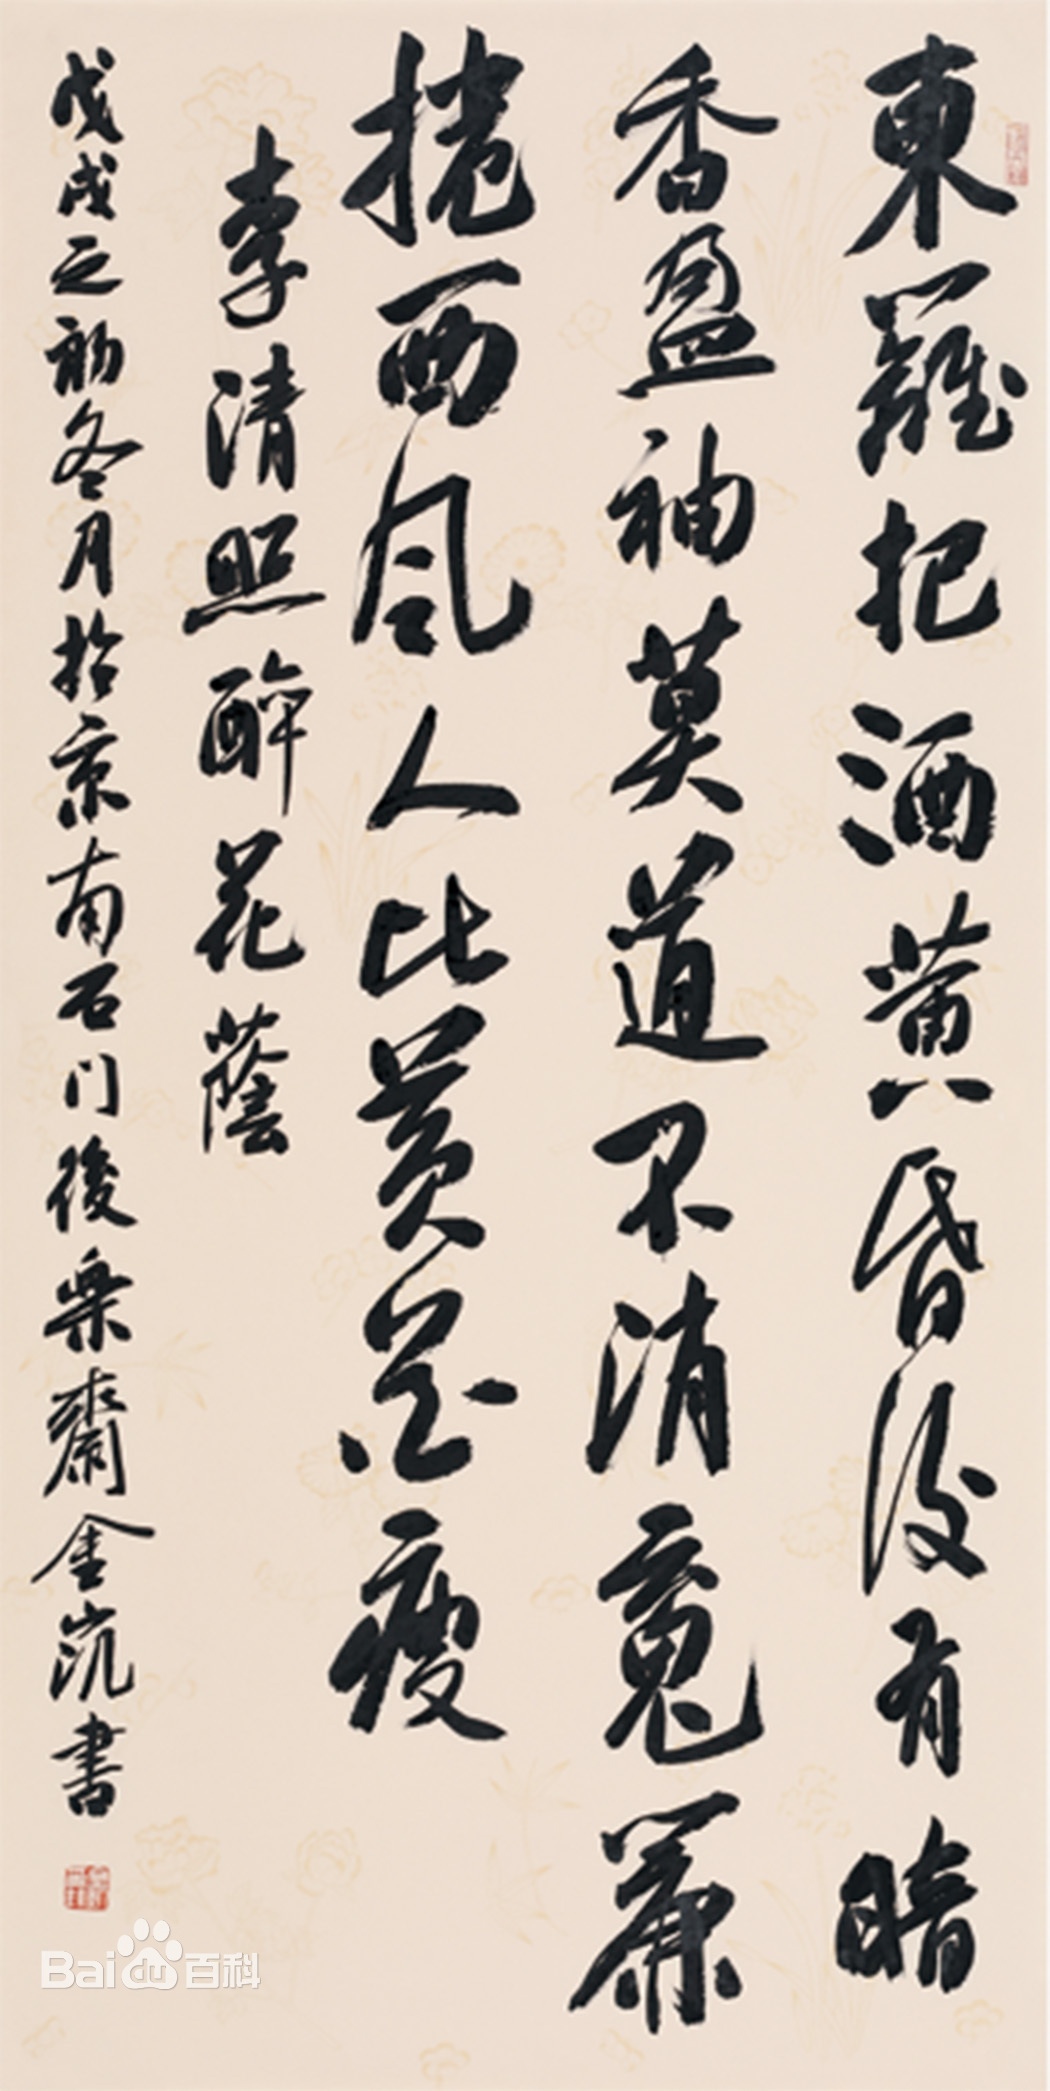 東籬把酒黄昏後有暗
香盈袖莫道不消魂簾
捲西风人比黄花瘦
李清照醉花蔭
戊戌之初冬月於京南石门後樂齋金沉書
Bai 百科